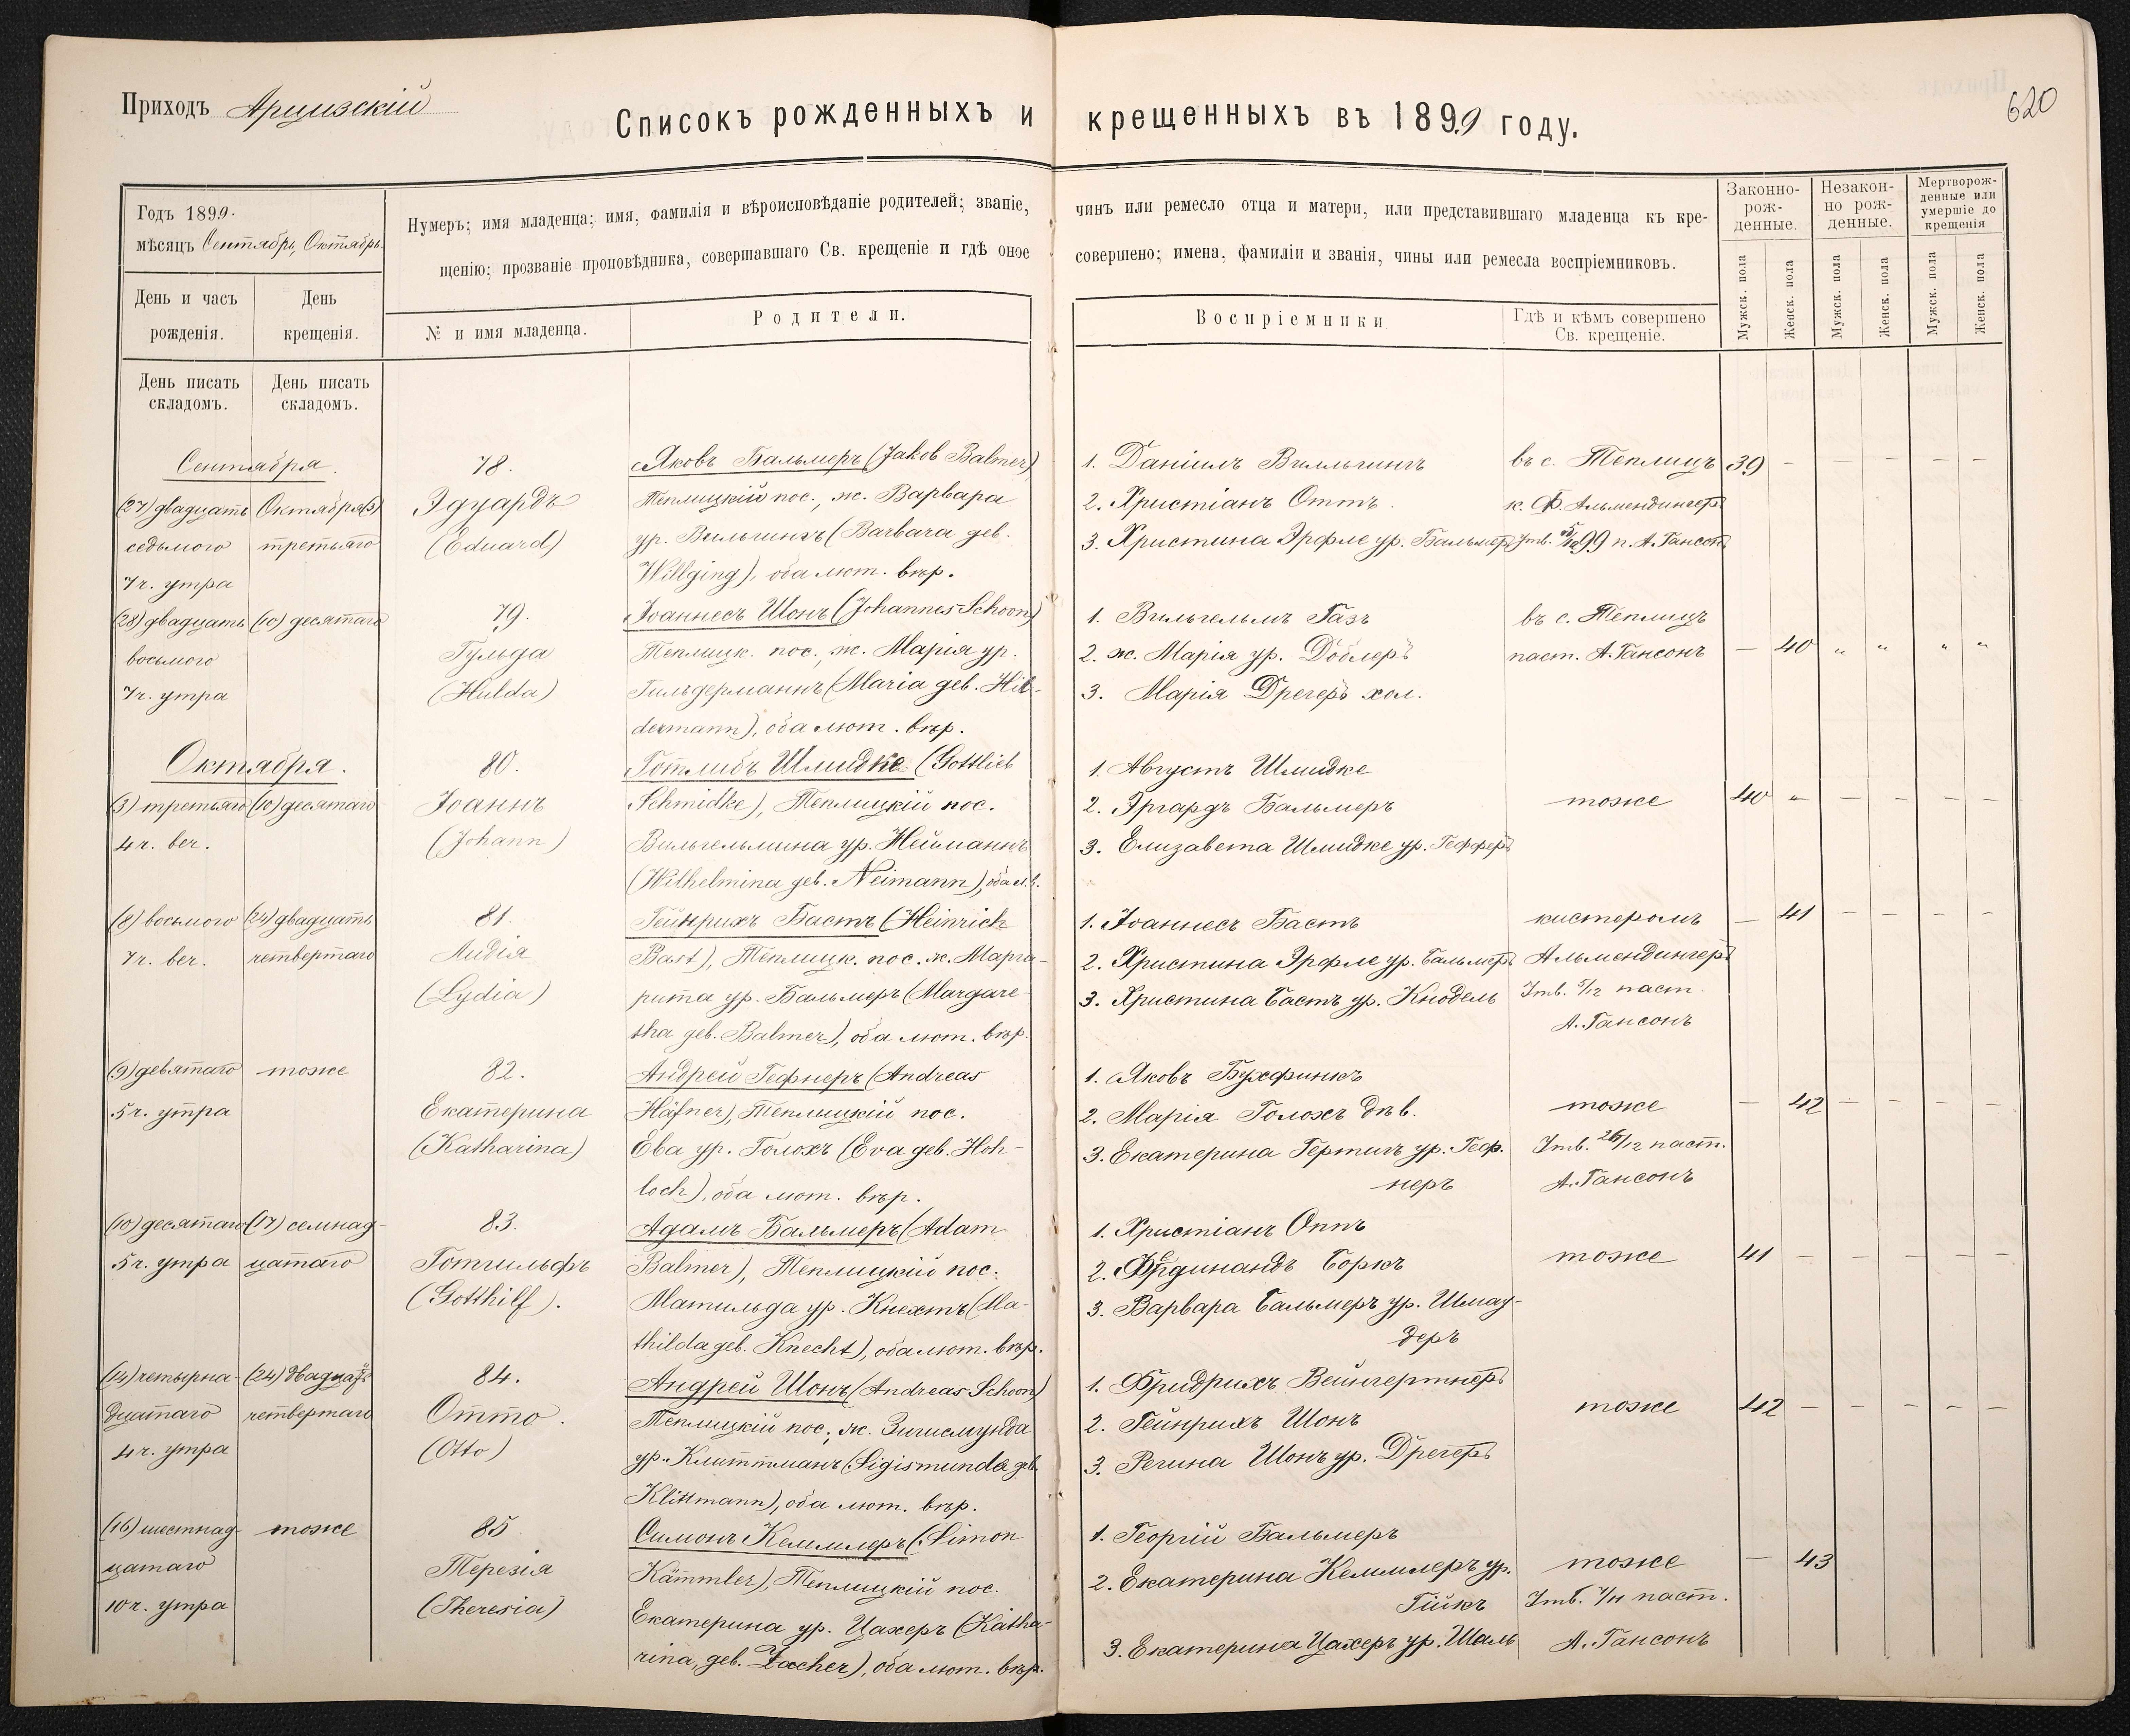 Приходъ Арцизскій
Списокъ рожденныхъ и крещенныхъ въ 1899 году.
620
Годъ 1899.
мѣсяцъ Сентябрь, Октябрь.
Нумеръ; имя младенца; имя, фамилія и вѣроисповѣданіе родителей; званіе, чинъ или ремесло отца и матери, или представившаго младенца къ кре-
щенію; прозваніе проповѣдника, совершавшаго Св. крещеніе и гдѣ оное совершено; имена, фамиліи и званія, чины или ремесла воспріемниковъ.
Законно-
рож-
денные.
Незакон-
но рож-
денные.
Мертворож-
денные или
умершіе до
крещенія
День и часъ
рожденія.
День
крещенія.
№ и имя младенца.
Родители.
Воспріемники.
Гдѣ и кѣмъ совершено
Св. крещеніе.
Мужск. пола
Женск. пола
Мужск. пола
Женск. пола
Мужск. пола
Женск. пола
День писать
складомъ.
День писать
складомъ.
Сентября.
(27) двадцать
седьмого
7 ч. утра
Октября (3)
третьяго
78.
Эдуардъ
(Eduard)
Яковъ Бальмеръ (Jakob Balmer)
Теплицкій пос., ж. Варвара
ур. Вильгингъ (Barbara geb.
Willging), оба лют. вѣр.
1. Даніилъ Вилльгингъ
2. Христіанъ Оттъ.
3. Христина Эрфле ур. Бальмеръ
въ с. Теплицъ
к. Ф. Альмендингеръ
Утв. 5/12 99 п. А. Гансонъ
39 – – – – –
(28) двадцать
восьмого
7 ч. утра
(10) десятаго
79.
Гульда
(Hulda)
Іоаннесъ Шонъ (Johannes Schoon)
Теплицк. пос., ж. Марія ур.
Гильдерманнъ (Maria geb. Hil-
dermann), оба лют. вѣр.
1. Вильгельмъ Газъ
2. ж. Марія ур. Доблеръ
3. Марія Дрегеръ хол.
въ с. Теплицъ
паст. А. Гансонъ
– 40 " " " "
Октября.
(3) третьяго
4 ч. веч.
(10) десятаго
80.
Іоаннъ
(Johann)
Готлибъ Шмидке (Gottlieb
Schmidke), Теплицкій пос.
Вильгельмина ур. Нейманнъ
(Wilhelmina geb. Neimann), оба л. в.
1. Августъ Шмидке
2. Эргардъ Бальмеръ
3. Елизавета Шмидке ур. Гефферъ
тоже
40 " – – – –
(8) восьмого
7 ч. веч.
(24) двадцать
четвертаго
81.
Лидія
(Lydia)
Гейнрихъ Бастъ (Heinrich
Bast), Теплицк. пос. ж. Марга-
рита ур. Бальмеръ (Margare-
tha geb. Balmer), оба лют. вѣр.
1. Іоаннесъ Бастъ
2. Христина Эрфле ур. Бальмеръ
3. Христина Бастъ ур. Кнодель
кистеромъ
Альмендингеръ
Утв. 5/12 паст.
А. Гансонъ
– 41 – – – –
(9) девятаго
5 ч. утра
тоже
82.
Екатерина
(Katharina)
Андрей Гефнеръ (Andreas
Häfner), Теплицкій пос.
Ева ур. Голохъ (Eva geb. Hoh-
loch), оба лют. вѣр.
1. Яковъ Бухфинкъ
2. Марія Голохъ дѣв.
3. Екатерина Гертигъ ур. Геф-
неръ
тоже
Утв. 26/12 паст.
А. Гансонъ
– 42 – – – –
(10) десятаго
5 ч. утра
(17) семнад-
цатаго
83.
Готгильфъ
(Gotthilf).
Адамъ Бальмеръ (Adam
Balmer), Теплицкій пос.
Матильда ур. Кнехтъ (Ma-
thilda geb. Knecht), оба лют. вѣр.
1. Христіанъ Оппъ
2. Фердинандъ Боркъ
3. Варвара Бальмеръ ур. Шмау-
деръ
тоже
41 – – – – –
(14) четырна-
дцатаго
4 ч. утра
(24) двадцать
четвертаго
84.
Отто.
(Otto)
Андрей Шонъ (Andreas Schoon)
Теплицкій пос., ж. Зигисмунда
ур. Клиттманъ (Sigismunda geb.
Klittmann), оба лют. вѣр.
1. Фридрихъ Вейнгертнеръ
2. Гейнрихъ Шонъ
3. Регина Шонъ ур. Дрегеръ
тоже
42 – – – – –
(16) шестнад-
цатаго
10 ч. утра
тоже
85
Терезія
(Theresia)
Симонъ Кеммлеръ (Simon
Kämmler), Теплицкій пос.
Екатерина ур. Цахеръ (Katha-
rina, geb. Zacher), оба лют. вѣр.
1. Георгій Бальмеръ
2. Екатерина Кеммлеръ ур.
Гіикъ
3. Екатерина Цахеръ ур. Шаль
тоже
Утв. 7/11 паст.
А. Гансонъ
– 43